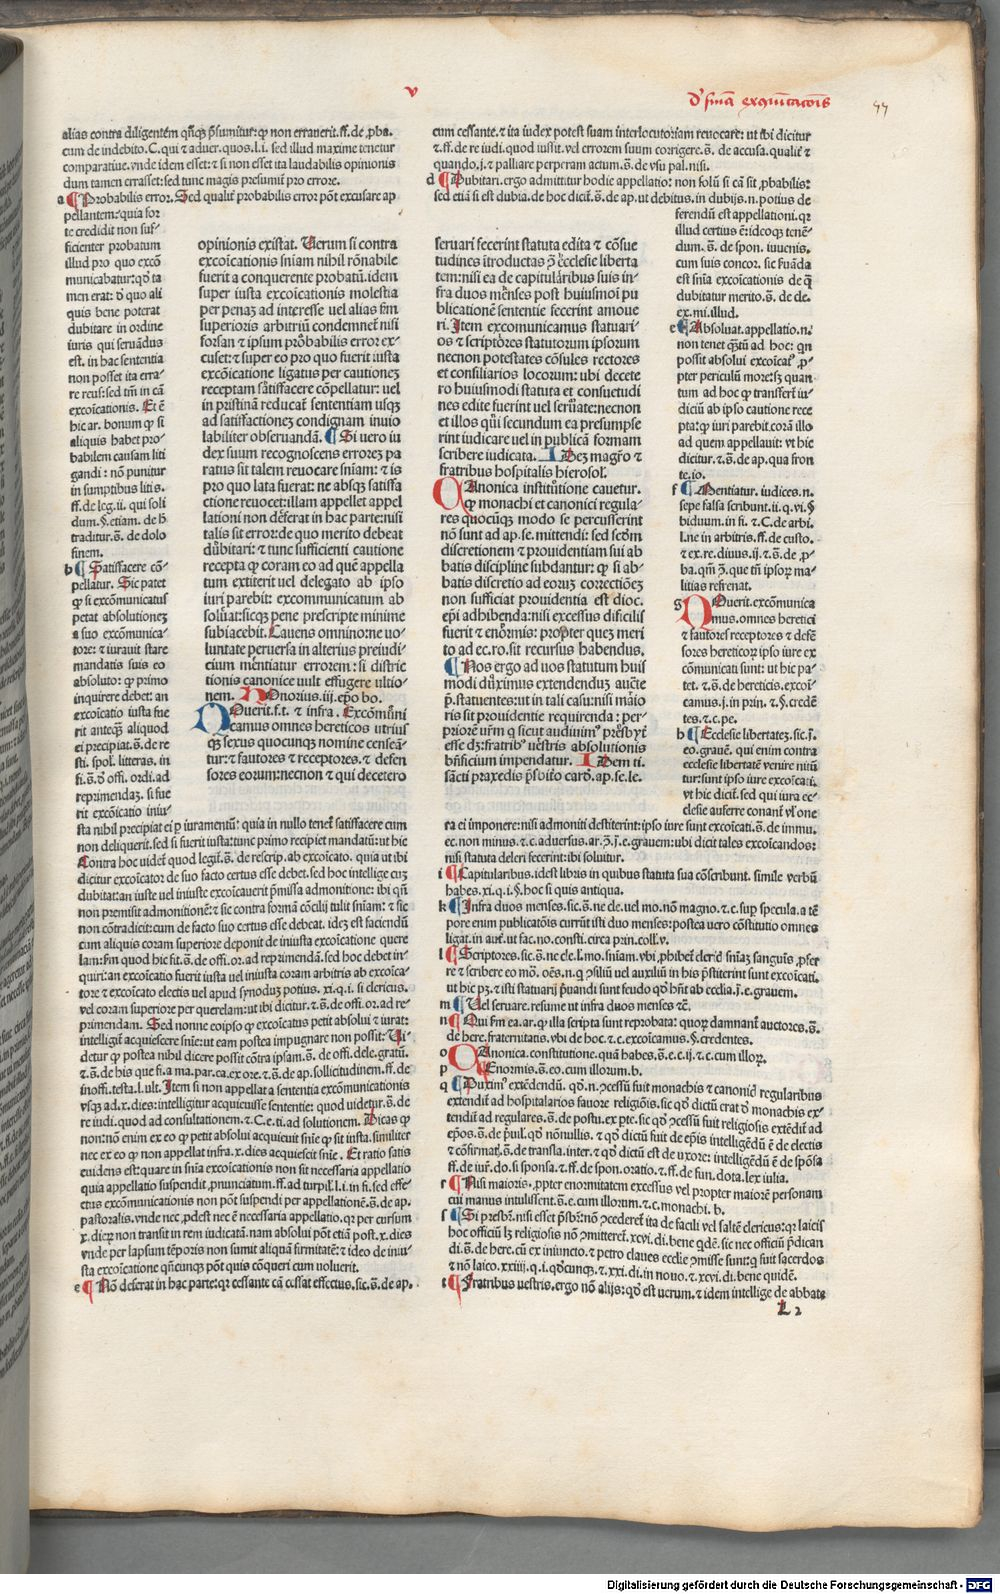 v
d' snīa excōicatōis
55
alias contra diligentem qn̄qꝫ p̄sumitur: ꝙ non errauerit. ff. de ꝓba.
cum de indebito. C. qui ⁊ aduer. quos. l. i. sed illud maxime tenetur
comparatiue. vnde idem esset: ⁊ si non esset ita laudabilis opinionis
dum tamen errasset: sed tunc magis presumit̄ pro errore.
a Probabilis error. Sed qualit̄ probabilis error pōt excusare ap
pellantem: quia for
te credidit non suf-
ficienter probatum
illud pro quo excō
municabatur: qd̄ ta
men erat: vl' quo ali
quis bene poterat
dubitare in ordine
iuris qui seruandus
est. in hac sententia
non posset ita erra-
re reus: sed tm̄ in cā
excōicationis. Et ē
hic ar. bonum ꝙ si
aliquis habet pro-
babilem causam liti
gandi: nō punitur
in sumptibus litis.
ff. de leg. ii. qui soli
dum. §. etiam. de h̄
traditur. s̄. de dolo
finem.
b Satisfacere cō-
pellatur. Sic patet
ꝙ si excōmunicatus
petat absolutionez
a suo excōmunica-
tore: ⁊ iurauit stare
mandatis suis eo
absoluto: ꝙ primo
inquirere debet: an
excōicatio iusta fue
rit anteqꝫ aliquod
ei precipiat. s̄. de re
sti. spol. litteras. in
fi. s̄. d' offi. ordi. ad
reprimendaꝫ. si fue
rit excōicatio iniu-
sta nihil precipiat ei ꝑ iuramentū: quia in nullo tenet̄ satisfacere cum
non deliquerit. sed si fuerit iusta: tunc primo recipiet mandatū: ut hic
Contra hoc uidet̄ quod legit̄. s̄. de rescrip. ab excōicato. quia ut ibi
dicitur excōicator de suo facto certus esse debet. sed hoc intellige cuꝫ
dubitat: an iuste vel iniuste excōicauerit p̄missa admonitione: ibi qn̄
non premisit admonitionē: ⁊ sic contra formā cōcilij tulit snīam: ⁊ sic
non cōtradicit: cum de facto suo certus esse debeat. ideꝫ est faciendū
cum aliquis coram superiore deponit de iniusta excōicatione quere
lam: fm̄ quod hic fit. s̄. de offi. or. ad reprimendā. sed hoc debet in-
quiri: an excōicatio fuerit iusta vel iniusta coram arbitris ab excōica-
tore ⁊ excōicato electis vel apud synoduꝫ potius. xi. q. i. si clericus.
vel coram superiore per querelam: ut ibi dicitur. ⁊. s̄. de offi. or. ad re-
primendam. Sed nonne eoipso ꝙ excōicatus petit absolui ⁊ iurat:
intelligit̄ acquiescere snīe: ut eam postea impugnare non possit: Ui-
detur ꝙ postea nihil dicere possit cōtra ipsam. s̄. de offi. dele. gratū.
⁊. s̄. de his que fi. a ma. par. ca. ex ore. ⁊. s̄. de ap. sollicitudinem. ff. de
inoffi. testa. l. ult. Item si non appellat a sententia excōmunicationis
vsqꝫ ad. x. dies: intelligitur acquieuisse sententie: quod uidetur. s̄. de
re iudi. quod ad consultationem. ⁊. C. e. ti. ad solutionem. Dicas ꝙ
non: nō enim ex eo ꝙ petit absolui acquieuit snīe ꝙ sit iusta. similiter
nec ex eo ꝙ non appellat infra. x. dies acquiescit snīe. Et ratio satis
euidens est: quare in snīa excōicationis non sit necessaria appellatio
quia appellatio suspendit ꝓnunciatum. ff. ad turpil. l. i. in fi. sed effe-
ctus excōmunicationis non pōt suspendi per appellationē. s̄. de ap.
pastoralis. vnde nec ꝓdest nec ē necessaria appellatio. qꝛ per cursum
x. dieꝝ non transit in rem iudicatā. nam absolui pōt etiā post. x. dies
vnde per lapsum tēporis non sumit aliquā firmitatē: ⁊ ideo de iniu-
sta excōicatione qn̄cunqꝫ pōt quis cōqueri cum uoluerit.
c Nō deferat in hac parte: qꝛ cessante cā cessat effectus. sic. s̄. de ap.
opinionis existat. Verum si contra
excōicationis snīam nihil rōnabile
fuerit a conquerente probatū. idem
super iusta excōicationis molestia
per penaꝫ ad interesse vel alias fm̄
superioris arbitriū condemnet̄ nisi
forsan ⁊ ipsum probabilis error ex-
cuset: ⁊ super eo pro quo fuerit iusta
excōicatione ligatus per cautionez
receptam satisfacere cōpellatur: vel
in pristinā reducat̄ sententiam usqꝫ
ad satisfactionez condignam inuio
labiliter obseruandā. Si vero iu
dex suum recognoscens errorez pa
ratus sit talem reuocare snīam: ⁊ is
pro quo lata fuerat: ne absqꝫ satisfa
ctione reuocet: illam appellet appel
lationi non deferat in hac parte: nisi
talis sit error: de quo merito debeat
dubitari: ⁊ tunc sufficienti cautione
recepta ꝙ coram eo ad quē appella
tum extiterit uel delegato ab ipso
iuri parebit: excommunicatum ab
soluat: sicqꝫ pene prescripte minime
subiacebit. Cauens omnino: ne uo-
luntate peruersa in alterius preiudi-
cium mentiatur errorem: si distric
tionis canonice uult effugere ultio-
nem. Honorius. iii. ep̄o bo.
Ouerit. f. t. ⁊ infra. Excōmuni
camus omnes hereticos utrius
qꝫ sexus quocunqꝫ nomine censeā-
tur: ⁊ fautores ⁊ receptores. ⁊ defen
sores eorum: necnon ⁊ qui decetero
seruari fecerint statuta edita ⁊ cōsue
tudines introductas ꝯ̄ ecclesie liberta
tem: nisi ea de capitularibus suis in-
fra duos menses post huiusmōi pu
blicationē sententie fecerint amoue
ri. Item excomunicamus statuari-
os ⁊ scriptores statutorum ipsorum
necnon potestates cōsules rectores
et consiliarios locorum: ubi decete
ro huiusmodi statuta et consuetudi
nes edite fuerint vel seruate: necnon
et illos qui secundum ea presumpse
rint iudicare uel in publicā formam
scribere iudicata. Idez magr̄o ⁊
fratribus hospitalis hierosol.
Canonica institutione cauetur.
ꝙ monachi et canonici regula-
res quocūqꝫ modo se percusserint
nō sunt ad ap. se. mittendi: sed scdm
discretionem ⁊ prouidentiam sui ab
batis discipline subdantur: ꝙ si ab-
batis discretio ad eoruꝫ correctiōez
non sufficiat prouidentia est dioc.
ep̄i adhibenda: nisi excessus dificilis
fuerit ⁊ enormis: propter quez meri
to ad ec. ro. sit recursus habendus.
Nos ergo ad uos statutum huius
modi duximus extendenduꝫ aucte
p̄. statuentes: ut in tali casu: nisi maio
ris sit prouidentie requirenda: per-
priorē urm̄ ꝗ sicut audiuim' presbyt̄
esse dꝫ: fratrib' uestris absolutionis
bn̄ficium impendatur. Idem ti.
sācti praxedis p̄sbito card. ap. se. le.
cum cessante. ⁊ ita iudex potest suam interlocutoriam reuocare: ut ibi dicitur
⁊. ff. de re iudi. quod iussit. vel errorem suum corrigere. s̄. de accusa. qualit̄ ⁊
quando. j. ⁊ palliare perperam actum. s̄. de vsu pal. nisi.
d Dubitari. ergo admittitur hodie appellatio: non solū si cā sit ꝓbabilis:
sed etiā si est dubia. de hoc dicit̄. s̄. de ap. ut debitus. in dubijs. n. potius de
ferendū est appellationi. qꝛ
illud certius ē: ideoqꝫ tenē-
dum. s̄. de spon. iuuenis.
cum suis concor. sic fuāda
est snīa excōicationis de q̄
dubitatur merito. s̄. de de.
ex. mi. illud.
e Absoluat. appellatio. n.
non tenet q̄tū ad hoc: qn
possit absolui excōicat' ꝓ-
pter periculū more: sꝫ quan
tum ad hoc ꝙ transfert̄ iu-
diciū ab ipso cautione rece
pta: ꝙ iuri parebit corā illo
ad quem appellauit: vt hic
dicitur. ⁊. s̄. de ap. qua fron
te. io.
f Mentiatur. iudices. n.
sepe falsa scribunt. ii. q. vi. §
biduum. in fi. ⁊. C. de arbi.
l. ne in arbitris. ff. de custo.
⁊ ex. re. diuus. ij. ⁊. s̄. de. ꝓ-
ba. qm̄ ꝯ̄. que tn̄ ipsoꝝ ma-
litias refrenat.
g Ouerit. excōmunica
mus. omnes heretici
⁊ fautores receptores ⁊ defē
sores hereticoꝝ ipso iure ex
cōmunicati sunt: ut hic pa-
tet. ⁊. s̄. de hereticis. excōi-
camus. j. in prin. ⁊. §. credē
tes. ⁊. c. pe.
h Ecclesie libertatez. sic. s̄.
eo. grauē. qui enim contra
ecclesie libertatē venire nitū
tur: sunt ipso iure excōicati.
vt hic dicit̄. sed qui iura ec-
clesie auferre conant̄ vl' one
ra ei imponere: nisi admoniti destiterint: ipso iure sunt excōicati. s̄. de immu.
ec. non minus. ⁊. c. aduersus. ar. ꝯ̄. s̄. e. grauem: ubi dicit tales excōicandos:
nisi statuta deleri fecerint: ibi soluitur.
i Capitularibus. idest libris in quibus statuta sua cōscribunt. simile verbū
habes. xi. q. i. §. hoc si quis antiqua.
k Infra duos menses. sic. s̄. ne de. uel mo. nō magno. ⁊. c. sup̄ specula. a tē
pore enim publicatōis currūt isti duo menses: postea vero cōstitutio omnes
ligat. in aut̄. ut fac. no. consti. circa prin. coll. v.
l Scriptores. sic. s̄. ne cle. l. mo. snīam. vbi ꝓhibet̄ cleric̄ snīaꝫ sanguīs ꝓfer
re ⁊ scribere eo mō. oēs. n. ꝗ ꝯsiliū uel auxiliū in his p̄stiterint sunt excōicati.
ut hic pꝫ. ⁊ isti statuarij p̄uandi sunt feudo qd̄ hn̄t ab ecclia. s̄. e. grauem.
m Uel seruare. resume ut infra duos menses ⁊c̄.
n Qui fm̄ ea. ar. ꝙ illa scripta sunt reprobata: quoꝝ damnant̄ auctores. s̄.
de here. fraternitatis. vbi de hoc. ⁊. c. excōicamus. §. credentes.
o Canonica. constitutione. quā habes. s̄. e. c. ij. ⁊. c. cum illoꝝ.
p Enormis. s̄. eo. cum illorum. b.
q Duxim' extēdendū. qd̄. n. ꝯcessū fuit monachis ⁊ canonic̄ regularibus
extendit̄ ad hospitalarios fauore religiōis. sic qd̄ dictū erat d' monachis ex'
tendit̄ ad regulares. s̄. de postu. ex pte. sic qd̄ ꝯcessū fuit religiosis extēdit̄ ad
ep̄os. s̄. de p̄uil. qd̄ nōnullis. ⁊ qd̄ dictū fuit de ep̄is intelligēdū ē de electis
⁊ cōfirmat̄. s̄. de transla. inter. ⁊ qd̄ dictū est de uxore: intelligēdū ē de spōsa
ff. de iur̄. do. si sponsa. ⁊. ff. de spon. oratio. ⁊. ff. de fun. dota. lex iulia.
r Nisi maioris. ꝓpter enormitatem excessus vel propter maiorē personam
cui manus intulissent. s̄. e. cum illorum. ⁊. c. monachi. b.
s Si presbr̄. nisi esset p̄sbr̄: nō ꝯcederet̄ ita de facili vel saltē clericus: qꝛ laicis
hoc officiū lꝫ religiosis nō ꝯmitteret̄. xcvi. di. bene qdē. sic nec officiū p̄dican
di. s̄. de here. cū ex iniuncto. ⁊ petro claues ecclie ꝯmisse sunt: ꝗ fuit sacerdos
⁊ nō laico. xxiiij. q. i. qd̄cunqꝫ. ⁊. xxi. di. in nouo. ⁊. xcvi. di. bene quidē.
t Fratribus vestris. ergo nō alijs: qd̄ est uerum. ⁊ idem intellige de abbate
L 2
Digitalisierung gefördert durch die Deutsche Forschungsgemeinschaft - DFG